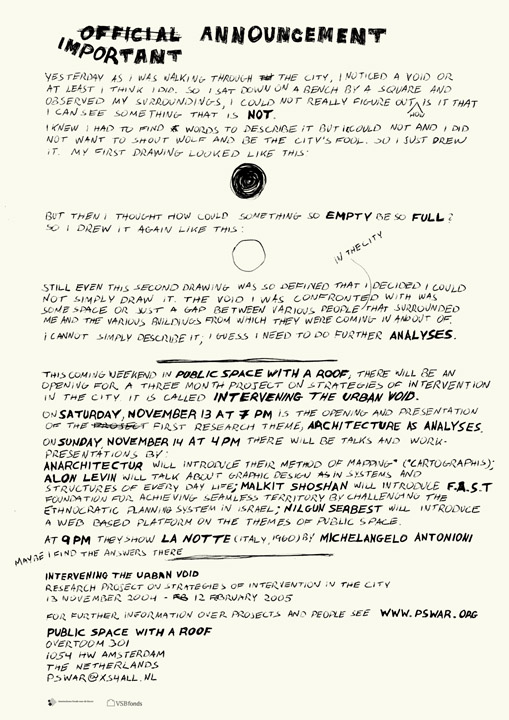 OFFICIAL ANNOUNCEMENT
IMPORTANT
YESTERDAY AS I WAS WALKING THROUGH THE CITY, I NOTICED A VOID OR
AT LEAST I THINK I DID. SO I SAT DOWN ON A BENCH BY A SQUARE AND
OBSERVED MY SURROUNDINGS, I COULD NOT REALLY FIGURE OUT HOW IS IT THAT
I CAN SEE SOMETHING THAT IS NOT.
I KNEW I HAD TO FIND WORDS TO DESCRIBE IT BUT I COULD NOT AND I DID
NOT WANT TO SHOUT WOLF AND BE THE CITY'S FOOL. SO I JUST DREW
IT. MY FIRST DRAWING LOOKED LIKE THIS:
BUT THEN I THOUGHT HOW COULD SOMETHING SO EMPTY BE SO FULL?
SO I DREW IT AGAIN LIKE THIS:
IN THE CITY
STILL EVEN THIS SECOND DRAWING WAS SO DEFINED THAT I DECIDED I COULD
NOT SIMPLY DRAW IT. THE VOID I WAS CONFRONTED WITH WAS
SOME SPACE OR JUST A GAP BETWEEN VARIOUS PEOPLE THAT SURROUNDED
ME AND THE VARIOUS BUILDINGS FROM WHICH THEY WERE COMING IN AND OUT OF.
I CANNOT SIMPLY DESCRIBE IT, I GUESS I NEED TO DO FURTHER ANALYSES.
THIS COMING WEEKEND IN PUBLIC SPACE WITH A ROOF, THERE WILL BE AN
OPENING FOR A THREE MONTH PROJECT ON STRATEGIES OF INTERVENTION
IN THE CITY. IT IS CALLED INTERVENING THE URBAN VOID.
ON SATURDAY, NOVEMBER 13 AT 7 PM IS THE OPENING AND PRESENTATION
OF THE PROJECT FIRST RESEARCH THEME, ARCHITECTURE AS ANALYSES.
ON SUNDAY, NOVEMBER 14 AT 4 PM THERE WILL BE TALKS AND WORK-
PRESENTATIONS BY:
ANARCHITECTUR WILL INTRODUCE THEIR METHOD OF MAPPING" ("CARTOGRAPHIS);
ALON LEVIN WILL TALK ABOUT GRAPHIC DESIGN AS IN SYSTEMS AND
STRUCTURES OF EVERY DAY LIFE; MALKIT SHOSHAN WILL INTRODUCE F.A.S.T
FOUNDATION FOR ACHIEVING SEAMLESS TERRITORY BY CHALLENGING THE
ETHNOCRATIC PLANNING SYSTEM IN ISRAEL; NILGUN SERBEST WILL INTRODUCE
A WEB BASED PLATFORM ON THE THEMES OF PUBLIC SPACE.
AT 9 PM THEY SHOW LA NOTTE (ITALY, 1960) BY MICHELANGELO ANTONIONI
MAYBE I FIND THE ANSWERS THERE
INTERVENING THE URBAN VOID
RESEARCH PROJECT ON STRATEGIES OF INTERVENTION IN THE CITY
13 NOVEMBER 2004 - 12 FEBRUARY 2005
FOR FURTHER INFORMATION OVER PROJECTS AND PEOPLE SEE WWW.PSWAR.ORG
PUBLIC SPACE WITH A ROOF
OVERTOOM 301
1054 HW AMSTERDAM
THE NETHERLANDS
PSWAR@XS4ALL.NL
VSBfonds